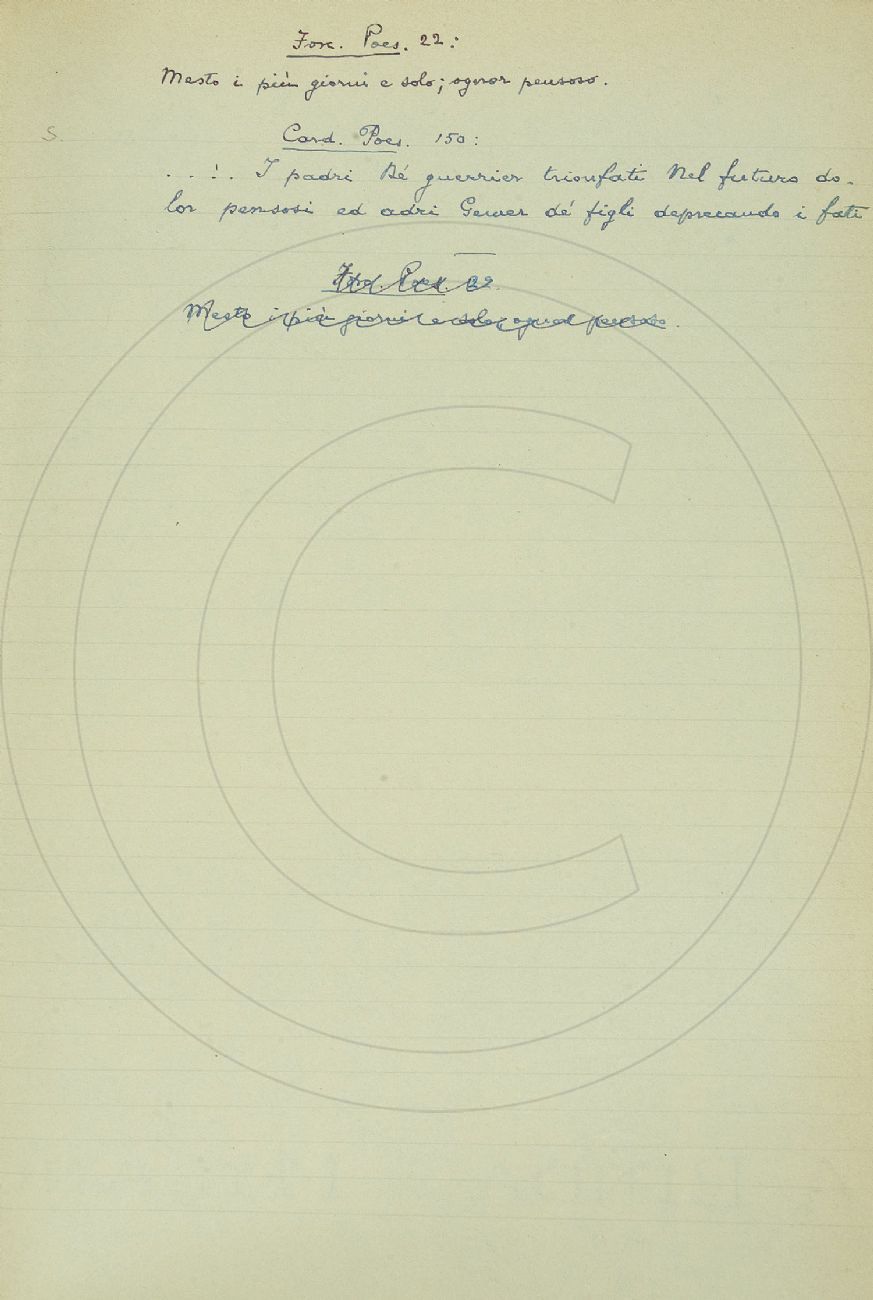 Fosc. Poes. 22:
Mesto i più giorni e solo; ognor pensoso.
S.
Card. Poes. 150:
. . . . I padri Dé guerrier trionfati Nel futuro do-
lor pensosi ed adri Gemer dé figli deprecando i fati
Fosc. Poes. 22.
Mesto i più giorni e solo, ognor pensoso.